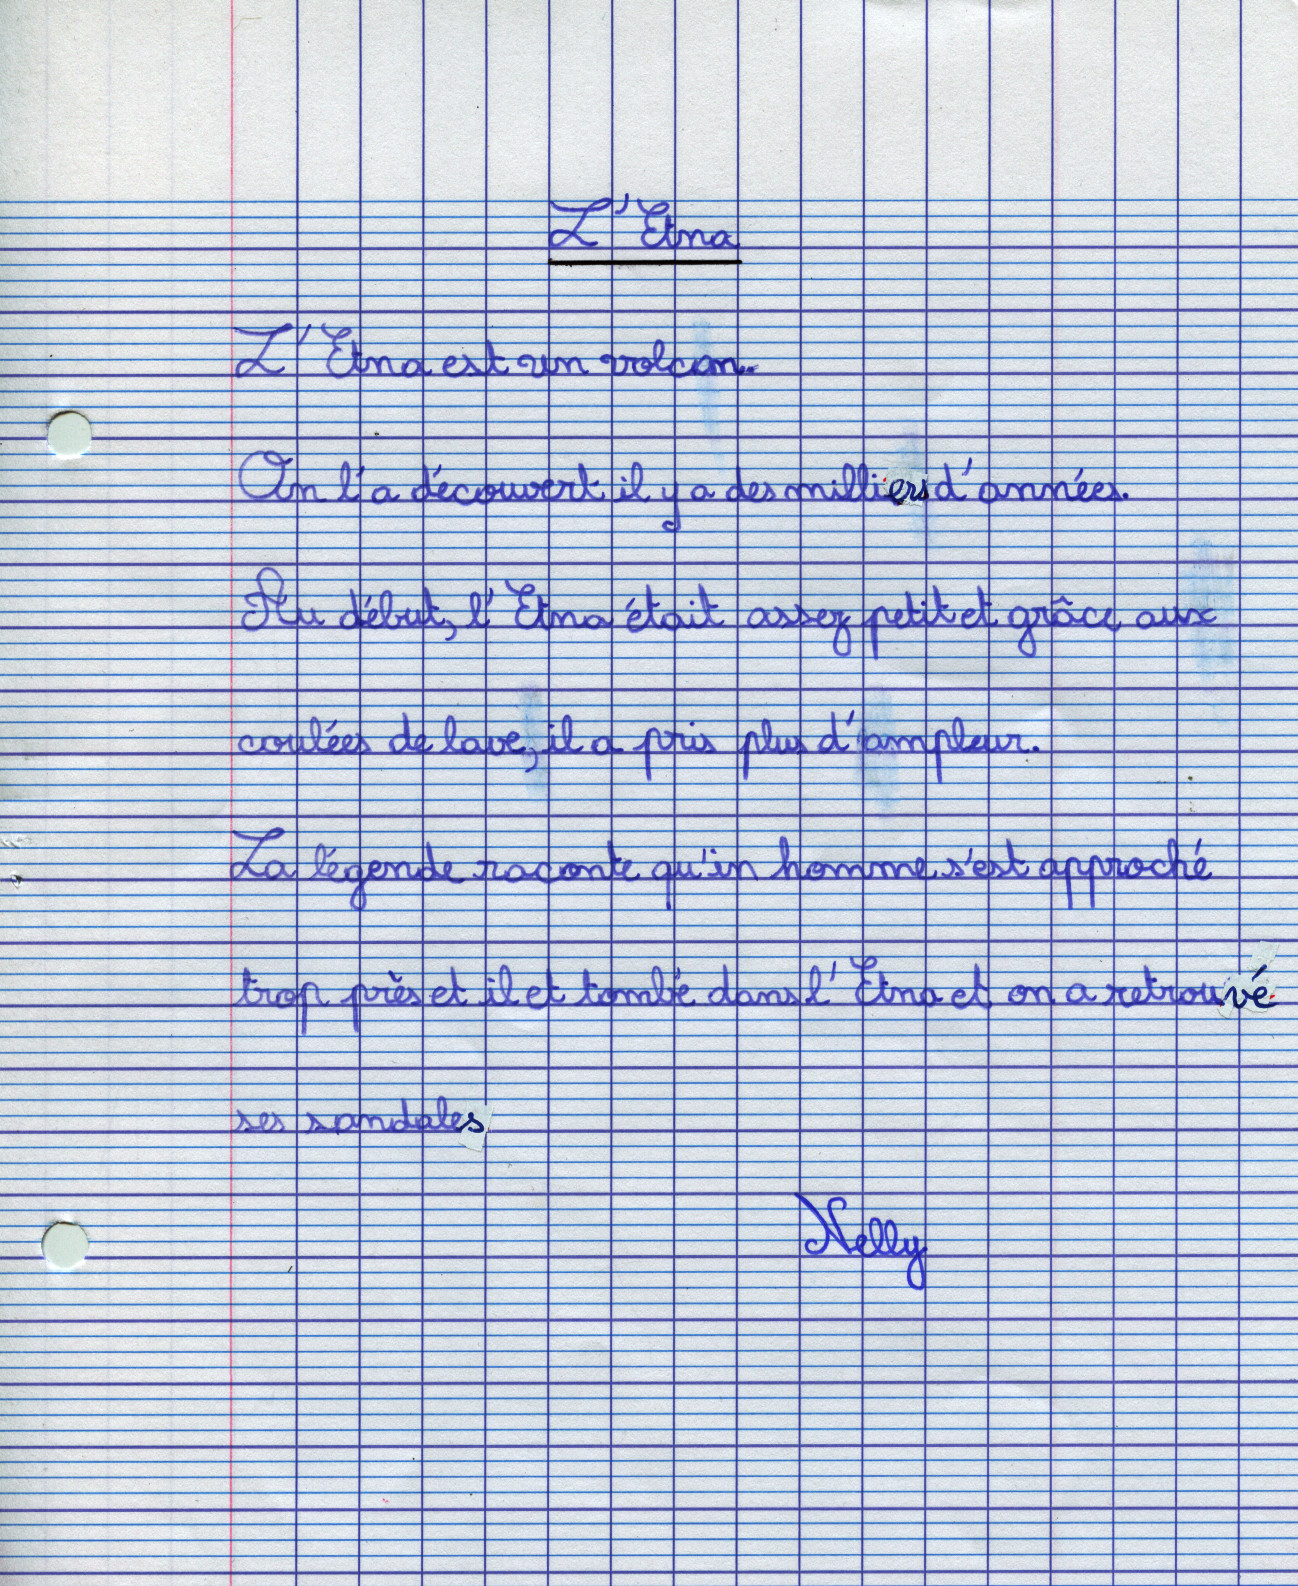 L'Etna
L'Etna est un volcan.
On l'a découvert il y a des milliers d'années.
Au début, l'Etna était assez petit et grâce aux
coulées de lave, il a pris plus d'ampleur.
La légende raconte qu'un homme s'est approché
trop près et il et tombé dans l'Etna et on a retrouvé
ses sandales
Nelly